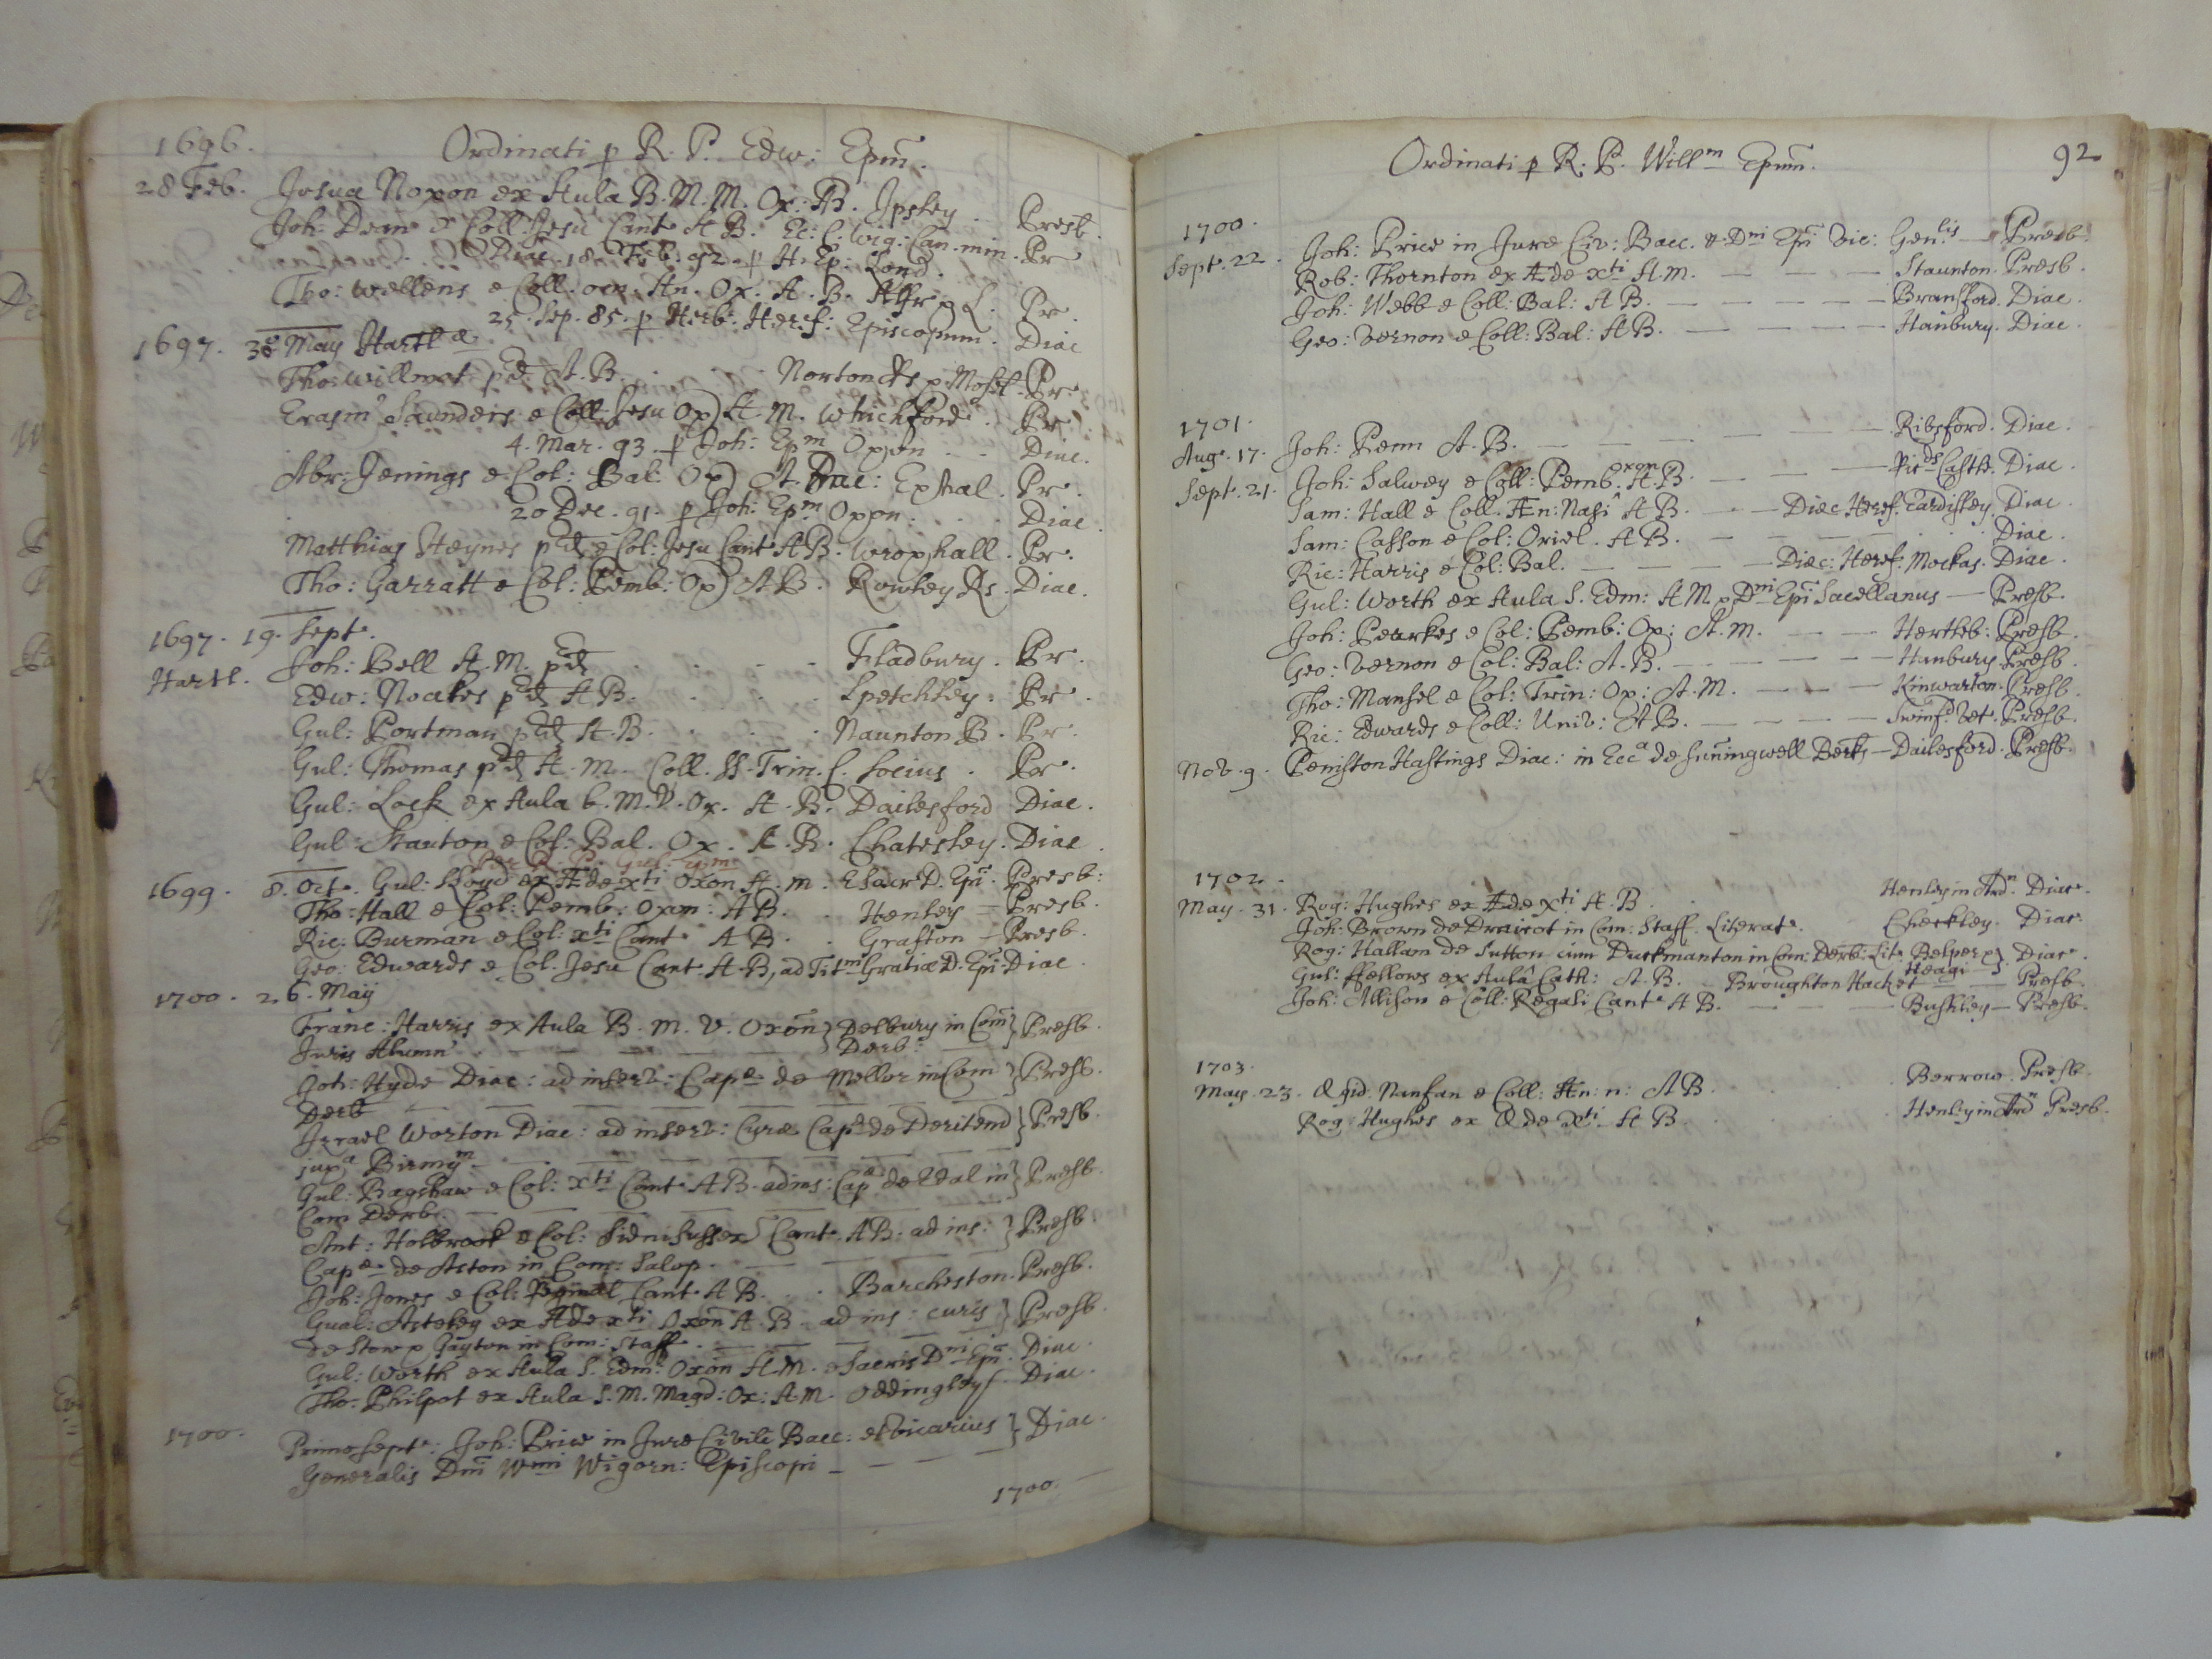 1696. Ordinati p R. P. Edw: Epm̄.
28 Feb. Josua Noxon ex Aula B. M. M. Ox: AB. Ipsley. Presb.
Joh: Dean e Coll: Jesu Cant A B. Ec: C. Wig: Can. min. Pr
Diac. 18. Feb. 92. p H. Ep: Lond.
Tho: Wellens e Coll. oen. An. Ox. A. B. L. Pr.
25. Sep. 85. p Herb: Heref: Episcopum. Diac
1697. 30 May Hartl
Tho: Willmot pd A. B. Norton Pr.
Erasm' Saunders e Coll: Jesu Ox) A. M. Whichford. Pr.
4. Mar. 93. p Joh: Epm Oxon . . Diac.
Abr: Jenings e Col: Bal: Ox) A. Exhal. Pr.
20 Dec. 91. p Joh: Epm Oxon. . . Diac.
Matthias Haynes pd e Col: Jesu Cant AB. Wroxhall. Pr.
Tho: Garratt e Col: Pemb: Ox) AB. Rowley Rs. Diac.
1697. 19. Sept.
Hartl. Joh: Bell A. M. pd . . . Fladbury. Pr.
Edw: Noakes pd A B. . . . Spetchley. Pr.
Gul: Portman pd A. B. . . . Naunton B. Pr.
Gul: Thomas pd A. M. Coll. SS. Trin. C. Socius. Pr.
Gul: Lock ex Aula b. M. V. Ox. A. B. Dailesford Diac.
Gul: Stanton e Col: Bal. Ox. A. B. Chatesley. Diac.
Per R. P. Gul: Epm
1699. 8. Oct. Gul: Lloyd ex Æde xti Oxon A. M. E Sacr D. Epi. Presb:
Tho: Hall e Col: Pemb: Oxon: AB. . Henley — Presb.
Ric: Burman e Col: xti Cant A B. . Grafton — Presb.
Geo: Edwards e Col. Jesu Cant A. B, ad Titm Gratiæ D. Epi. Diac.
1700. 26. May
Franc: Harris ex Aula B. M. V. Oxon } Delbury in Com } Presb.
Juris Alumn' — — — — } Derb: —
Joh: Hyde Diac: ad inserv: Cape de Mellor in Com } Presb.
Derb — — — — — —
Izrael Worton Diac: ad inserv: Curæ Cape de Deritend } Presb.
juxa Birmgm — — — — — —
Gul: Bagshaw e Col: xti Cant AB. ad ins: Cape de Edal in } Presb.
Com Derb. — — — — — —
Ant: Holbrook e Col: Sidni Sussex Cant. AB: ad ins: } Presb
Cape de Aston in Com: Salop. — — —
Joh: Jones e Col: Cant. A B. . . Barcheston. Presb.
Gual: Asteley ex Æde xti Oxon A. B. ad ins: curis } Presb.
de Stow p Gayton in Com: Staff. — — —
Gul: Worth ex Aula S. Edm: Oxon A. M. e Sacris Dni Epi. Diac.
Tho: Philpot ex Aula S. M. Magd: Ox: A. M. Oddingley. Diac.
1700. Primo Sept: Joh: Price in Jure Civili Bacc: et Vicarius } Diac.
Generalis Dni Wmi Wigorn: Episcopi — — —
1700.
Ordinati p R. P. Willm Epm̄. 92
1700.
Sept. 22. Joh: Price in Jure Civ: Bacc. & Dni Epi Vic: Genlis — Presb.
Rob: Thornton ex Æde xti A. M. — — — Staunton. Presb.
Joh: Webb e Coll: Bal: A B. — — — — — Bransford. Diac.
Geo: Vernon e Coll: Bal: A B. — — — — — Hanbury. Diac.
1701.
Aug. 17. Joh: Penn A. B. — — — — — Ribsford. Diac.
Sept. 21. Joh: Salwey e Coll: Pemb. Oxon A. B. — — — Ricds Castle. Diac.
Sam: Hall e Coll. Æn: Nasi A B. — — Diæc Heref. Eardisley. Diac.
Sam: Casson e Col: Oriel. A B. — — — — . . Diac.
Ric: Harris e Col: Bal. — — — — Diæc: Heref: Mockas. Diac.
Gul: Worth ex Aula S. Edm: A M. Dni Epi Sacellanus — Presb.
Joh: Pearkes e Col: Pemb: Ox: A. M. — — — Hertleb: Presb.
Geo: Vernon e Col: Bal: A. B. — — — — — Hanbury. Presb.
Tho: Mansel e Col: Trin: Ox: A. M. — — — Kinwarton. Presb.
Ric: Edwards e Coll: Univ: A B. — — — — Swinfd Vet. Presb.
Nov. 9. Peniston Hastings Diac: in Ecca de Suningwell Berks — Dailesford. Presb.
1702.
May. 31. Rog: Hughes ex Æde xti A. B. . . Henley in Ardn. Diac.
Joh: Brown de Draicot in Com: Staff. Literat. . Checkley. Diac.
Rog: Hallam de Sutton cum Duckmanton in Com: Derb: Lit: Belper & } Diac.
Heagi }
Gul: ffellows ex Aulâ Cath: A. B. — Broughton Hacket — — Presb.
Joh: Allison e Coll: Regali Cant. A B. — — — Bushley — Presb.
1703.
May. 23. Ægid. Nanfan e Coll: Æn: n: A B. . . . Berrow. Presb.
Rog: Hughes ex Æde xti A B. . . . Henley in Ardn Presb.